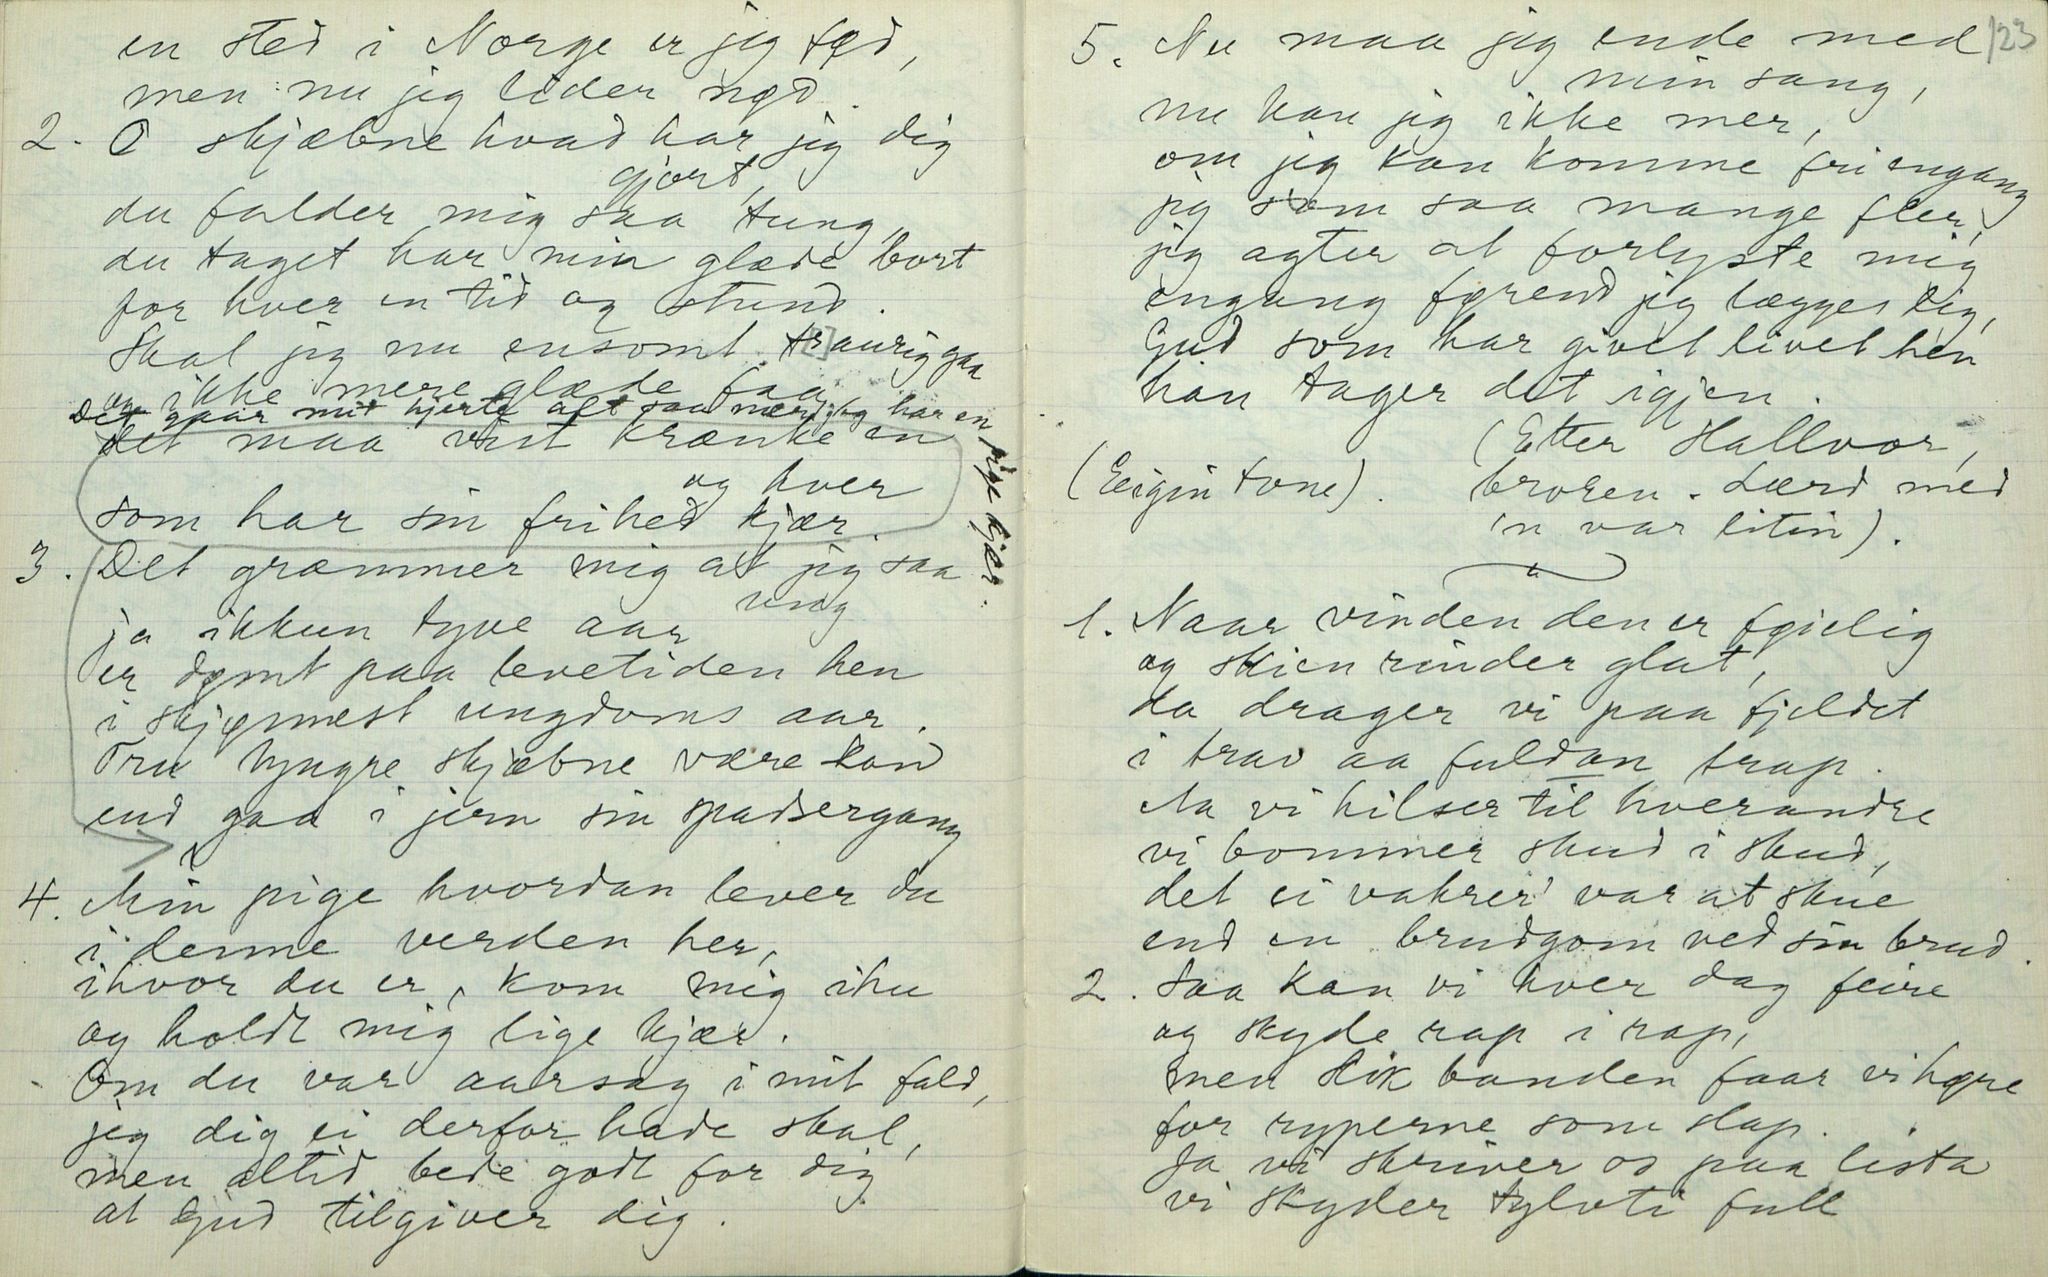 en sted i Norge er jeg fød,
men nu jeg lider nød.
2. O skjæbne hvad har jeg dig
gjort,
du falder mig saa tung,
du taget har min glæde bort
for hver en tid og stund.
Skal jeg nu ensomt t[r]aurig gaa
og ikke mere glæde faa
Det gaar mit hjerte alt saa nær, jeg har en
pige kjær.
det maa vist krænke en
og hver
som har sin frihed kjær.
3. Det græmmer mig at jeg saa
ung
ja ikkun tyve aar
er dømt paa levetiden hen
i skjønnest ungdoms aar.
Tru tyngre skjæbne være kan
end gaa i jern sin spadsergang
4. Min pige hvordan lever du
i denne verden her,
ihvor du er, kom mig ihu
og holdt mig lige kjær.
Om du var aarsag i mit fald,
jeg dig ei derfor hade skal,
men altid bede godt for dig
at Gud tilgiver dig.
123
5. Nu maa jeg ende med
min sang,
nu kan jeg ikke mer,
om jeg kan komme fri engang
jeg som saa mange fler,
jeg agter at forlyste mig
engang førend jeg lægges lig,
Gud som har givet livet hen
han tager det igjen.
(Etter Hallvor,
(Eigin tone). broren. Lærd med
'n var litin).
1. Naar vinden den er føielig
og skien rinder glat,
da drager vi paa fjeldet
i trav aa fuldan trap.
Aa vi hilser til hverandre
vi bommer skud i skud,
det ei vakrer' var at skue
end en brudgom ved sin brud.
2. Saa kan vi hver dag feire
og skyde rap i rap,
men slik banden faar vi høre
for ryperne som slap.
Ja vi skriver os paa lista
vi skyder tylvti full